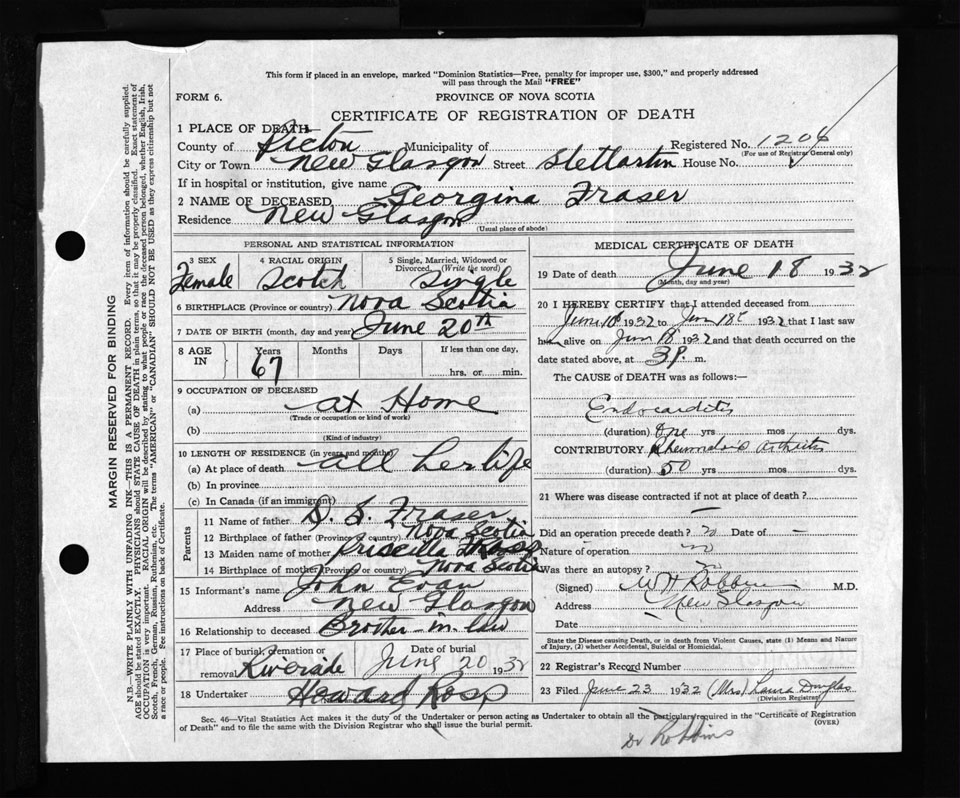 This form if placed in an envelope, marked "Dominion Statistics—Free, penalty for improper use, $300," and properly addressed
will pass through the Mail "FREE"
FORM 6.
PROVINCE OF NOVA SCOTIA
CERTIFICATE OF REGISTRATION OF DEATH
1 PLACE OF DEATH
County of Pictou Municipality of Registered No. 1206
(For use of Registrar General only)
City or Town New Glasgow Street Stellarton House No.
If in hospital or institution, give name
2 NAME OF DECEASED Georgina Fraser
Residence New Glasgow
(Usual place of abode)
PERSONAL AND STATISTICAL INFORMATION
3 SEX 4 RACIAL ORIGIN 5 Single, Married, Widowed or
Divorced. (Write the word)
Female Scotch Single
6 BIRTHPLACE (Province or country) Nova Scotia
7 DATE OF BIRTH (month, day and year) June 20th
8 AGE IN Years Months Days If less than one day,
67 hrs. or min.
9 OCCUPATION OF DECEASED
(a) at Home
(Trade or occupation or kind of work)
(b)
(Kind of industry)
10 LENGTH OF RESIDENCE (in years and months)
(a) At place of death all her life
(b) In province
(c) In Canada (if an immigrant)
Parents
11 Name of father D. S. Fraser
12 Birthplace of father (Province or country) Nova Scotia
13 Maiden name of mother Priscilla
14 Birthplace of mother (Province or country) Nova Scotia
15 Informant's name John Evan
Address New Glasgow
16 Relationship to deceased Brother-in-law
17 Place of burial, cremation or Date of burial
removal Riverside June 20 1932
18 Undertaker Howard Ross
MEDICAL CERTIFICATE OF DEATH
19 Date of death June 18 1932
(Month, day and year)
20 I HEREBY CERTIFY that I attended deceased from
June 1932 to Jun 18 1932 that I last saw
her alive on Jun 18 1932 and that death occurred on the
date stated above, at 3 P. m.
The CAUSE of DEATH was as follows:—
Endocarditis
(duration) One yrs mos dys.
CONTRIBUTORY Rheumatoid arthritis
(duration) 50 yrs mos dys.
21 Where was disease contracted if not at place of death?
—
Did an operation precede death? no Date of —
Nature of operation no
Was there an autopsy? no
(Signed) W H Robbins M.D.
Address New Glasgow
Date
State the Disease causing Death, or in death from Violent Causes, state (1) Means and Nature
of Injury, (2) whether Accidental, Suicidal or Homicidal.
22 Registrar's Record Number
23 Filed June 23 1932 (Mrs) Laura Douglas
(Division Registrar)
Sec. 46—Vital Statistics Act makes it the duty of the Undertaker or person acting as Undertaker to obtain all the particulars required in the "Certificate of Registration
of Death" and to file the same with the Division Registrar who shall issue the burial permit.
(OVER)
Dr Robbins
MARGIN RESERVED FOR BINDING
N.B.—WRITE PLAINLY WITH UNFADING INK—THIS IS A PERMANENT RECORD. Every item of information should be carefully supplied.
AGE should be stated EXACTLY. PHYSICIANS should STATE CAUSE OF DEATH in plain terms, so that it may be properly classified. Exact statement of
OCCUPATION is very important. RACIAL ORIGIN will be described by stating to what people or race the deceased person belonged, whether English, Irish,
Scotch, French, German, Russian, Ruthenian, etc. The terms "AMERICAN" or "CANADIAN" SHOULD NOT BE USED as they express citizenship but not
a race or people. See instructions on back of Certificate.